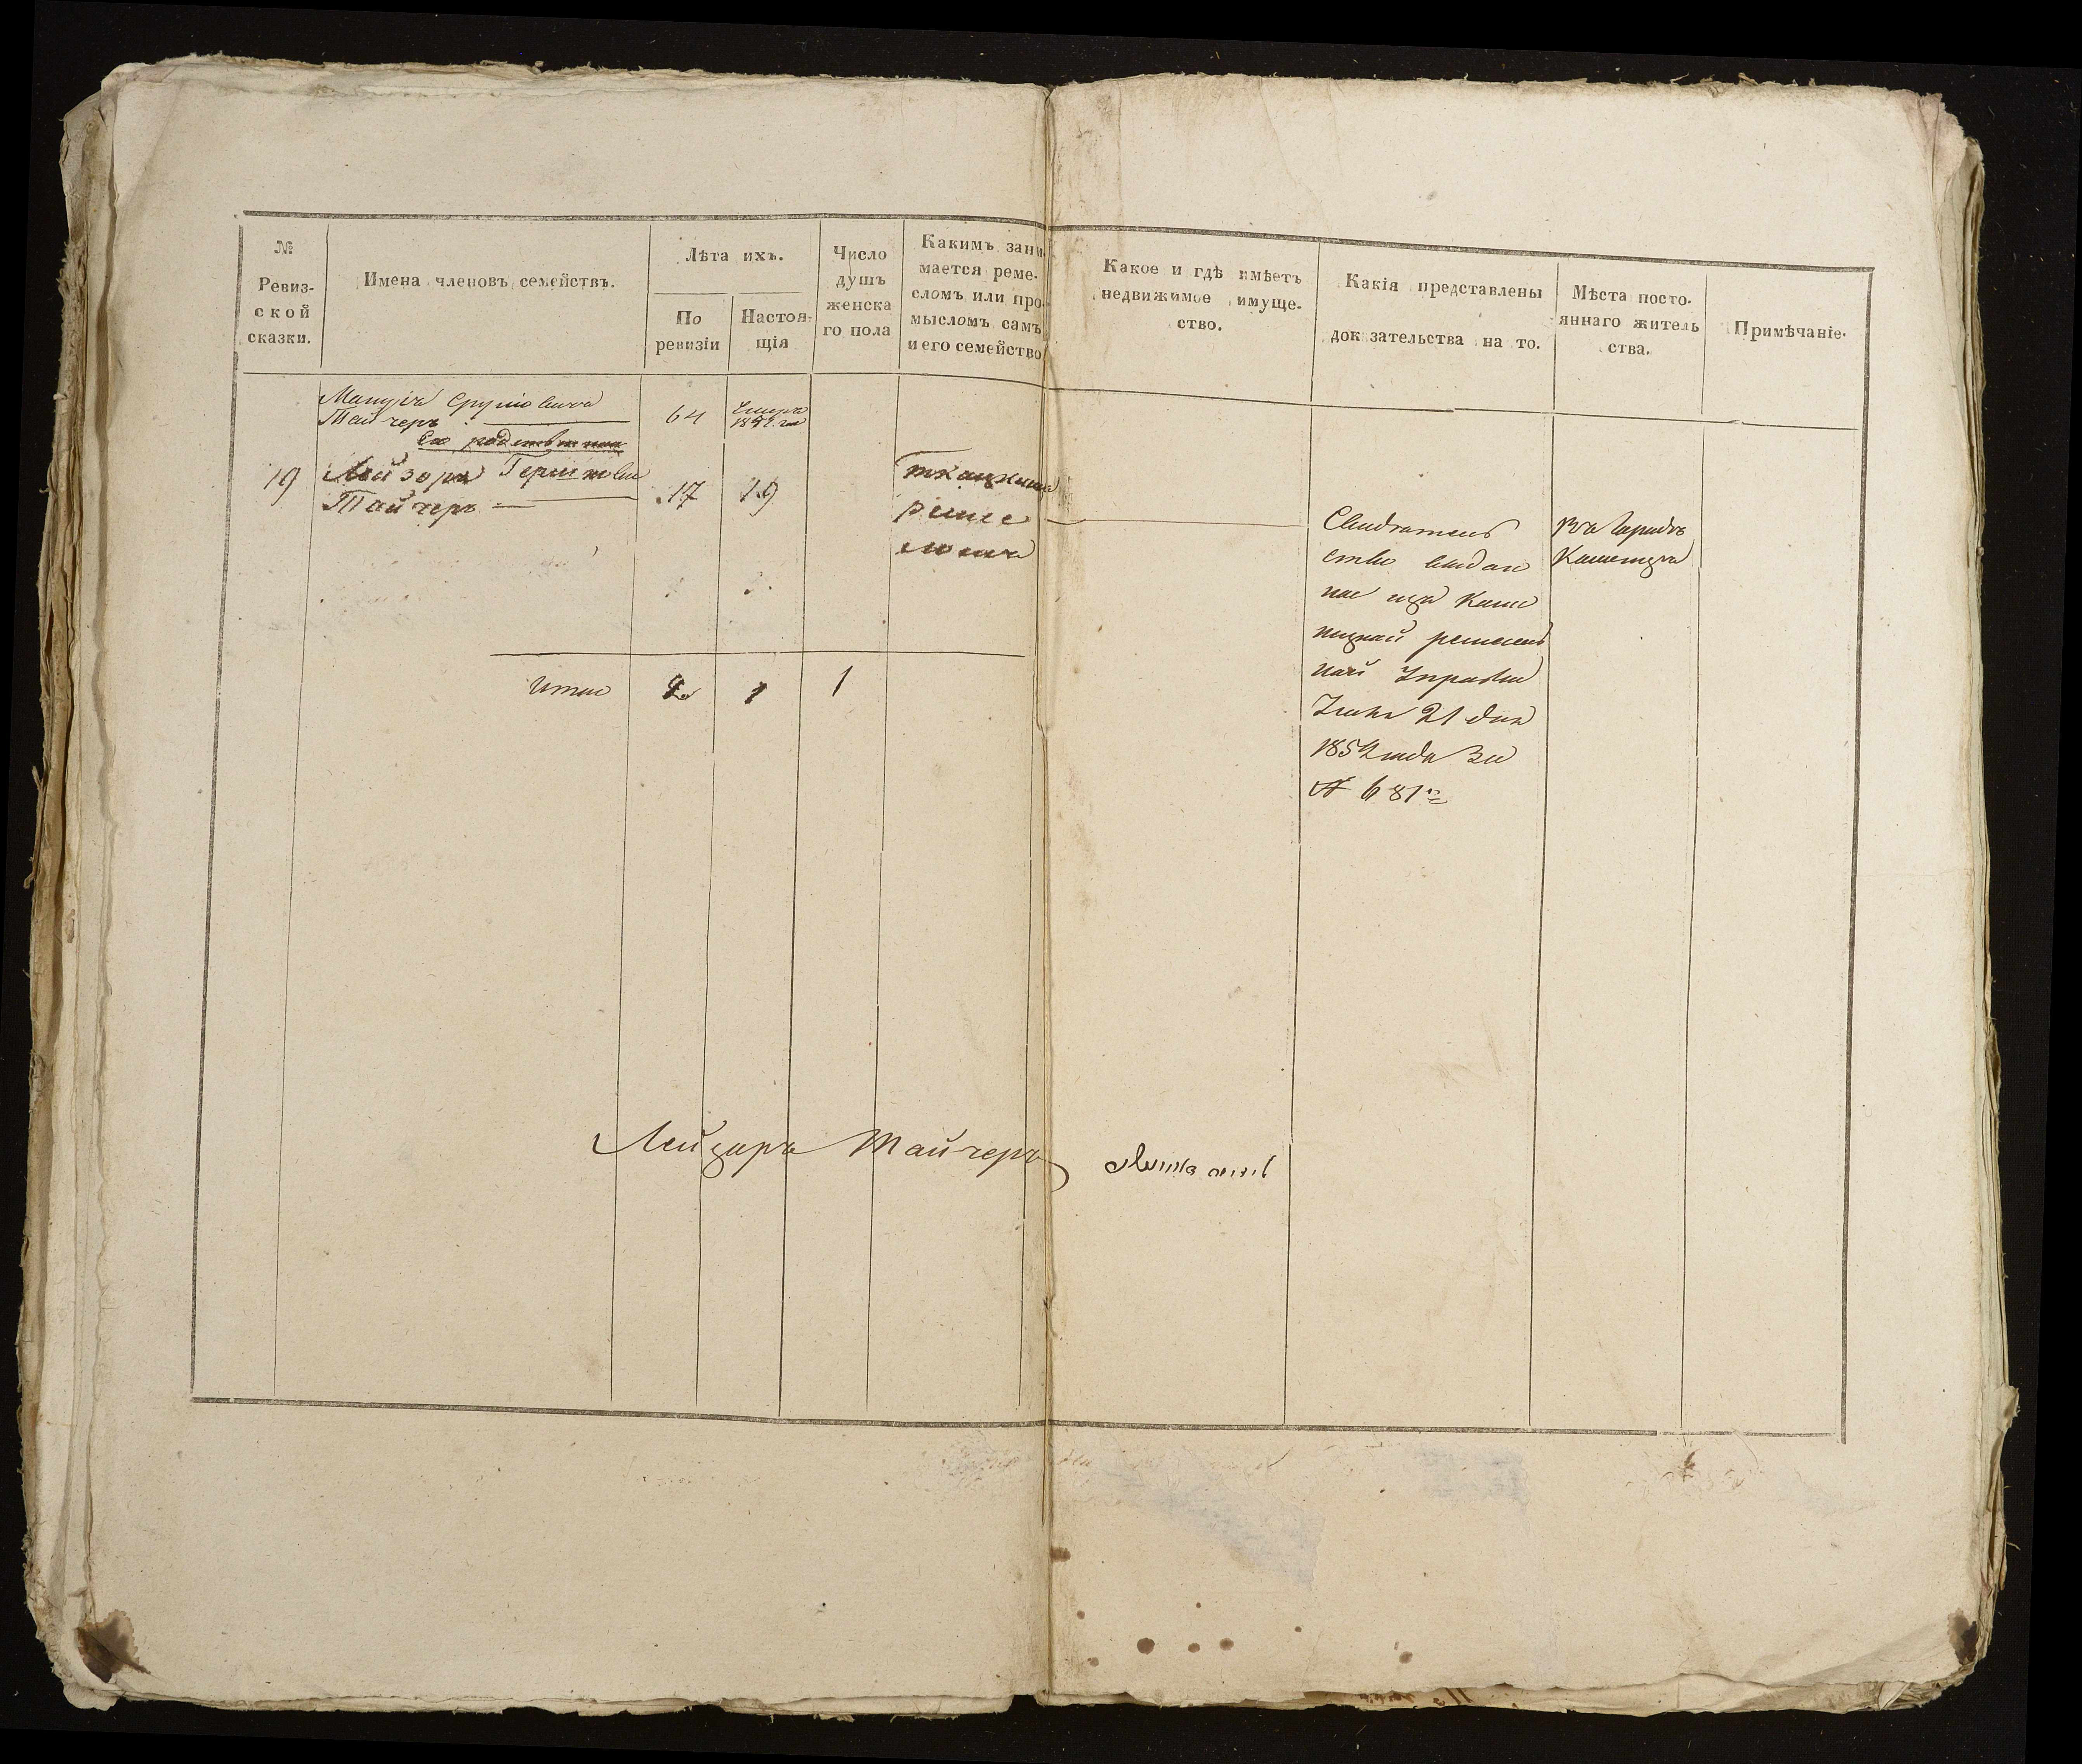 №
Ревиз-
ской
сказки.
Имена членовъ семействъ.
Лѣта ихъ.
По
ревизіи
Настоя-
щія
Число
душъ
женска
го пола
Какимъ зани-
мается реме-
сломъ или про-
мысломъ самъ
и его семейство
Какое и гдѣ имѣетъ
недвижимое имуще-
ство.
Какія представлены
доказательства на то.
Мѣста посто-
яннаго житель
ства.
Примѣчаніе.
Тайчеръ
64
19
Лейзоръ Гершков
Тайчеръ
17
19
ткацкимъ
реме
сломъ
Свидѣтель
ство выдан
ное изъ Каме
нецкой ремеслен
ной Управы
Іюня 21 дня
1852 года за
№ 681
въ городѣ
Каменцѣ
итого
2
1
1
Лейзоръ Тайчеръ